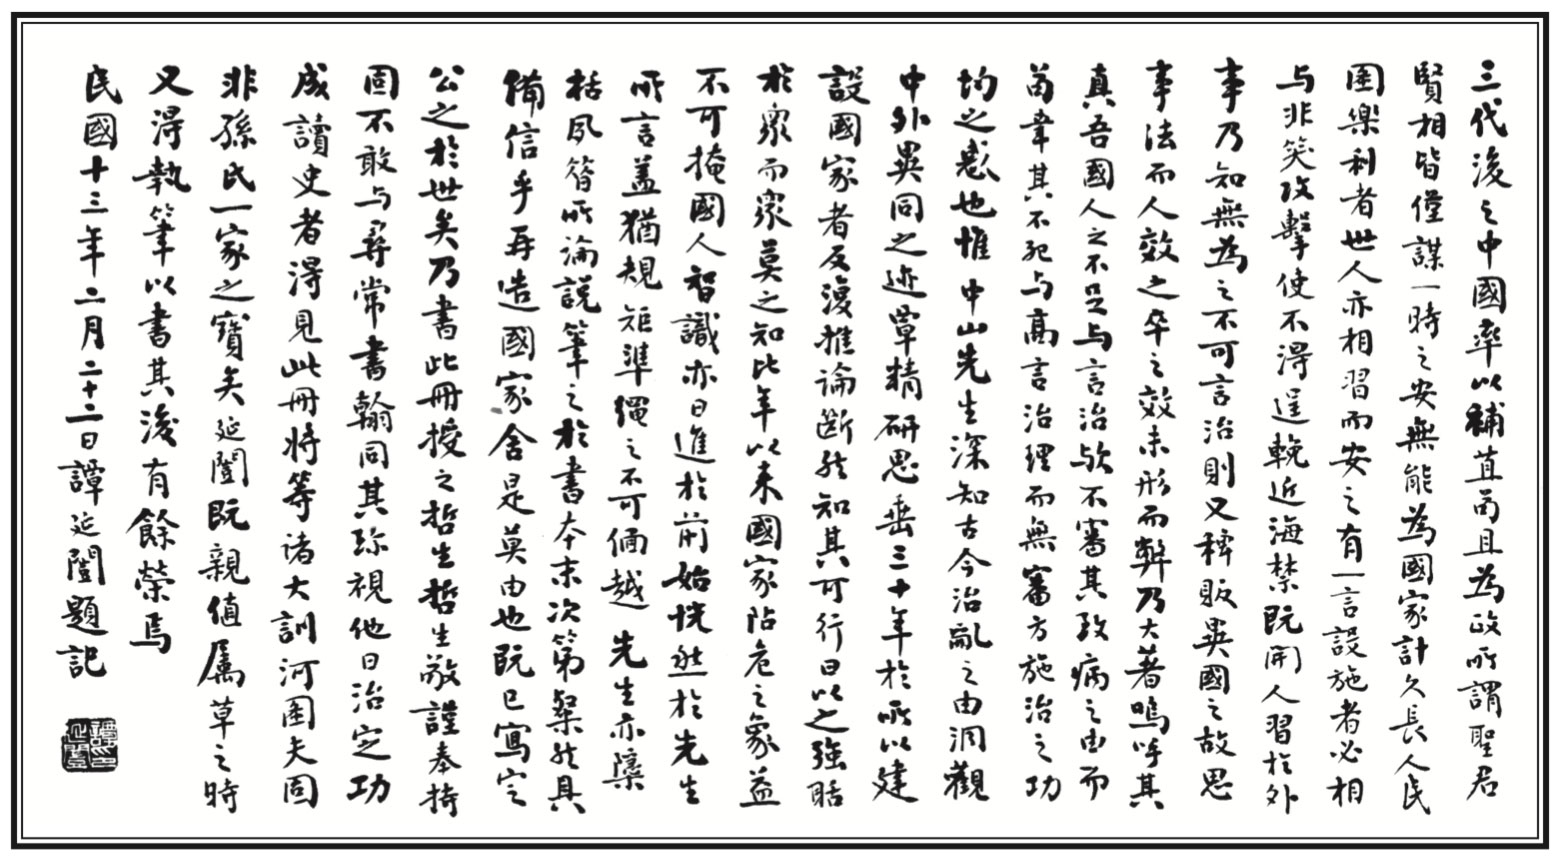 三代後之中國率以補苴苟且為政所謂聖君
賢相皆僅謀一時之安無能為國家計久長人民
圉樂利者世人亦相習而安之有一言設施者必相
与非笑攻擊使不得逞輓近海禁既開人習於外
事乃知無為之不可言治則又稗販異國之故思
事法而人效之卒之效未形而弊乃大著嗚呼其
真吾國人之不足与言治欤不審其致病之由而
苟韋其不死与高言治理而無審方施治之功
均之惑也惟中山先生深知古今治亂之由洞觀
中外異同之迹覃精研思垂三十年於所以建
設國家者反復推論斷然知其可行日以之強聒
於眾而眾莫之知比年以來國家阽危之象益
不可掩國人智識亦日進於前始恍然於先生
所言蓋猶規矩準繩之不可偭越先生亦隱
栝夙昔所論說筆之於書本末次第粲然具
備信乎再造國家舍是莫由也既已寫定
公之於世矣乃書此冊授之哲生哲生敬謹奉持
固不敢与尋常書翰同其珍視他日治定功
成讀史者得見此冊將等诸大訓河圖夫固
非孫氏一家之寶矣延闓既親值屬草之時
又得執筆以書其後有餘榮焉
民國十三年二月二十二日譚延闓題記